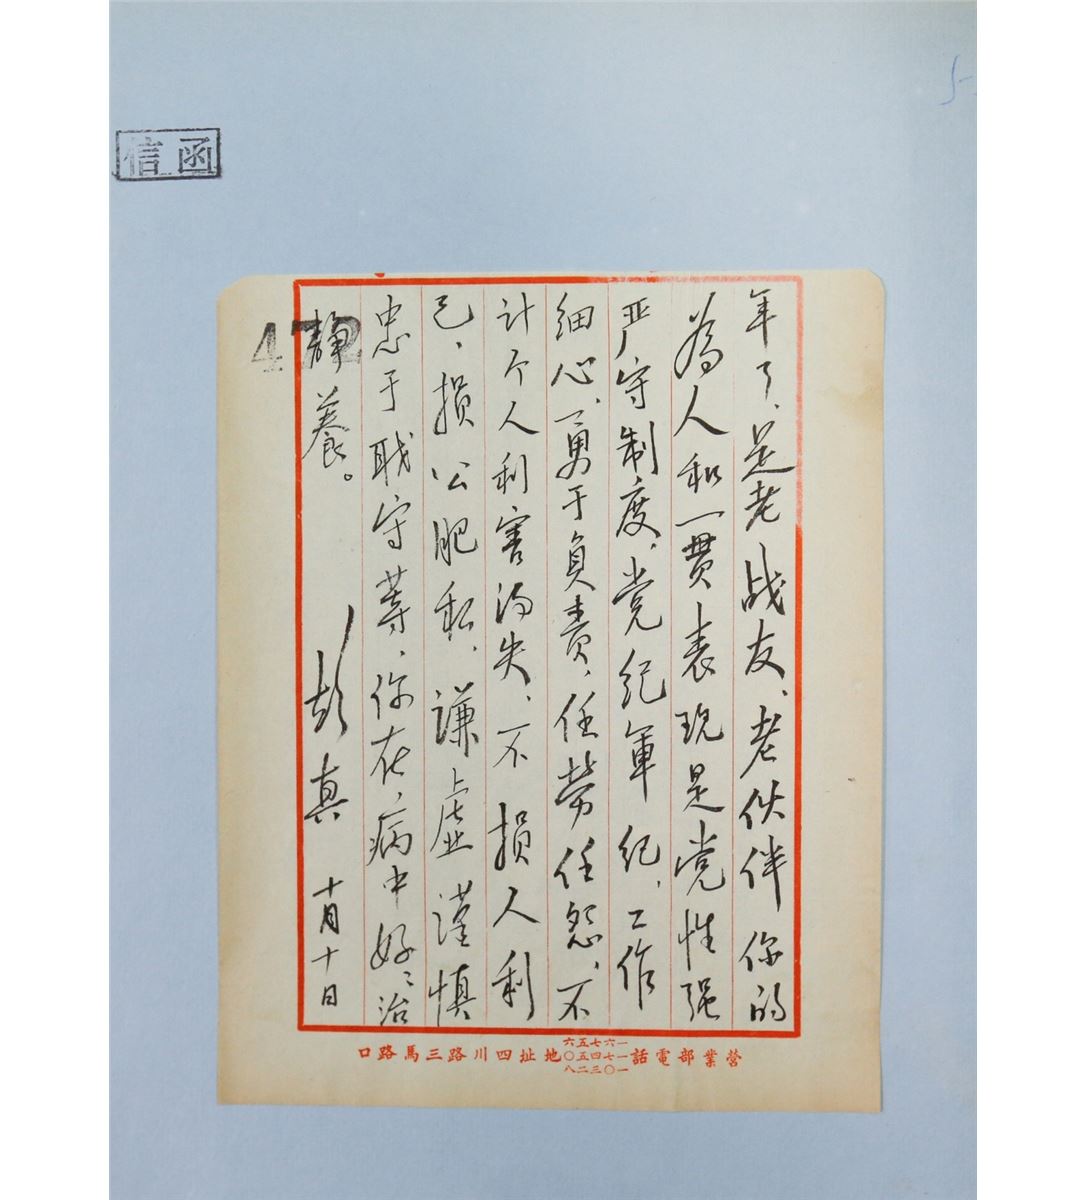 信函
472
年了、是老战友、老伙伴你的
為人和一贯表现是党性强
严守制度、党纪军纪、工作
细心、勇于负责、任劳任怨、不
计个人利害得失、不损人利
己、损公肥私、谦虚谨慎
忠于职守等、你在病中好々治
静養。
彭真 十月十日
營業部電話
一六七五六
一七四五〇
一〇三二八
地址四川路三馬路口